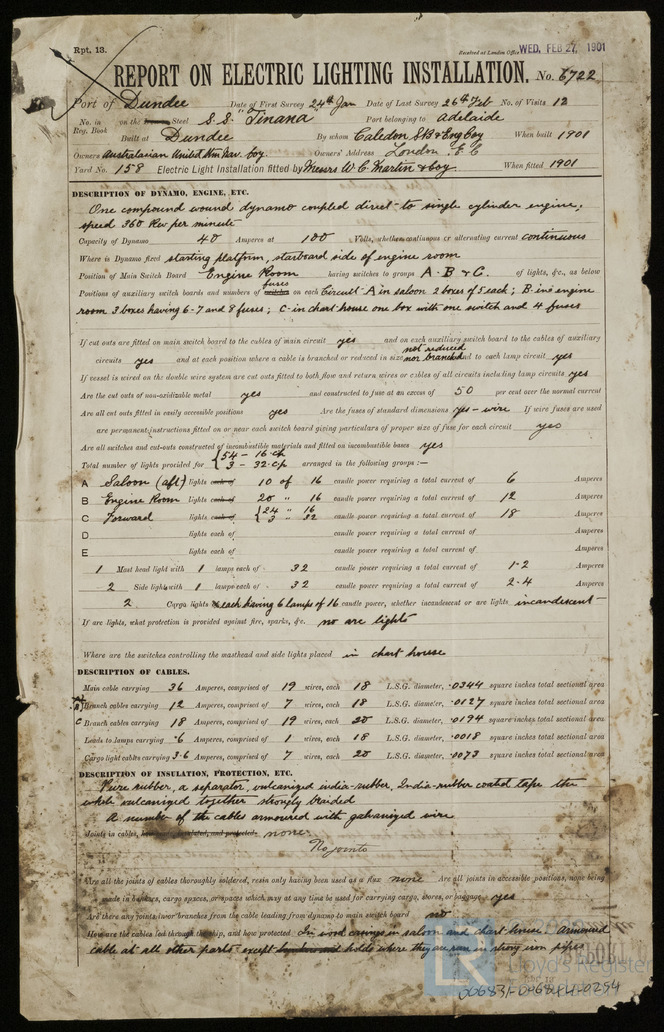 Rpt. 13.
Received at London Office WED. FEB 27. 1901
REPORT ON ELECTRIC LIGHTING INSTALLATION. No. 6722
Port of Dundee Date of First Survey 24th Jan Date of Last Survey 26th Feb No. of Visits 12
No. in Reg. Book on the Steel S.S. "Tinana" Port belonging to Adelaide
Built at Dundee By whom Caledon SB & Eng Coy When built 1901
Owners Australasian United Stm Nav. Coy. Owners' Address London E C
Yard No. 158 Electric Light Installation fitted by Messrs W. C. Martin & Coy When fitted 1901
DESCRIPTION OF DYNAMO, ENGINE, ETC.
One compound wound dynamo coupled direct to single cylinder engine;
speed 360 Rev per minute
Capacity of Dynamo 40 Amperes at 100 Volts, whether continuous or alternating current continuous
Where is Dynamo fixed starting platform, starboard side of engine room
Position of Main Switch Board Engine Room having switches to groups A. B & C. of lights, &c., as below
Positions of auxiliary switch boards and numbers of switches fuses on each Circuit A in saloon 2 boxes of 5 each; B in engine
room 3 boxes having 6-7 and 8 fuses; C in chart house one box with one switch and 4 fuses
If cut outs are fitted on main switch board to the cables of main circuit yes and on each auxiliary switch board to the cables of auxiliary
circuits yes and at each position where a cable is branched or reduced in size not reduced nor branched and to each lamp circuit yes
If vessel is wired on the double wire system are cut outs fitted to both flow and return wires or cables of all circuits including lamp circuits yes
Are the cut outs of non-oxidizable metal yes and constructed to fuse at an excess of 50 per cent over the normal current
Are all cut outs fitted in easily accessible positions yes Are the fuses of standard dimensions yes - wire If wire fuses are used
are permanent instructions fitted on or near each switch board giving particulars of proper size of fuse for each circuit yes
Are all switches and cut-outs constructed of incombustible materials and fitted on incombustible bases yes
Total number of lights provided for { 54 - 16 cp 3 - 32 cp arranged in the following groups :—
A Saloon (aft) lights each of 10 of 16 candle power requiring a total current of 6 Amperes
B Engine Room lights each of 20 " 16 candle power requiring a total current of 12 Amperes
C Forward lights each of { 24 " 16 3 " 32 candle power requiring a total current of 18 Amperes
D lights each of candle power requiring a total current of Amperes
E lights each of candle power requiring a total current of Amperes
1 Mast head light with 1 lamps each of 32 candle power requiring a total current of 1.2 Amperes
2 Side light with 1 lamps each of 32 candle power requiring a total current of 2.4 Amperes
2 Cargo lights each having 6 lamps of 16 candle power, whether incandescent or arc lights incandescent
If arc lights, what protection is provided against fire, sparks, &c. no arc lights
Where are the switches controlling the masthead and side lights placed in chart house
DESCRIPTION OF CABLES.
Main cable carrying 36 Amperes, comprised of 19 wires, each 18 L.S.G. diameter, .0344 square inches total sectional area
Branch cables carrying 12 Amperes, comprised of 7 wires, each 18 L.S.G. diameter, .0127 square inches total sectional area
C Branch cables carrying 18 Amperes, comprised of 19 wires, each 20 L.S.G. diameter, .0194 square inches total sectional area
Leads to lamps carrying .6 Amperes, comprised of 1 wires, each 18 L.S.G. diameter, .0018 square inches total sectional area
Cargo light cables carrying 3.6 Amperes, comprised of 7 wires, each 20 L.S.G. diameter, .0073 square inches total sectional area
DESCRIPTION OF INSULATION, PROTECTION, ETC.
Pure rubber, a separator, vulcanized india-rubber, India-rubber coated tape the
whole vulcanized together strongly braided
A number of the cables armoured with galvanized wire
Joints in cables, how made, insulated, and protected none.
No joints
Are all the joints of cables thoroughly soldered, resin only having been used as a flux none Are all joints in accessible positions, none being
made in bunkers, cargo spaces, or spaces which may at any time be used for carrying cargo, stores, or baggage yes
Are there any joints in or branches from the cable leading from dynamo to main switch board no
How are the cables led through the ship, and how protected In wood casings in saloon and chart-house. Armoured
cable at all other parts except holds where they are run in strong iron pipes
LR Lloyd's Register
006831-006844-0254